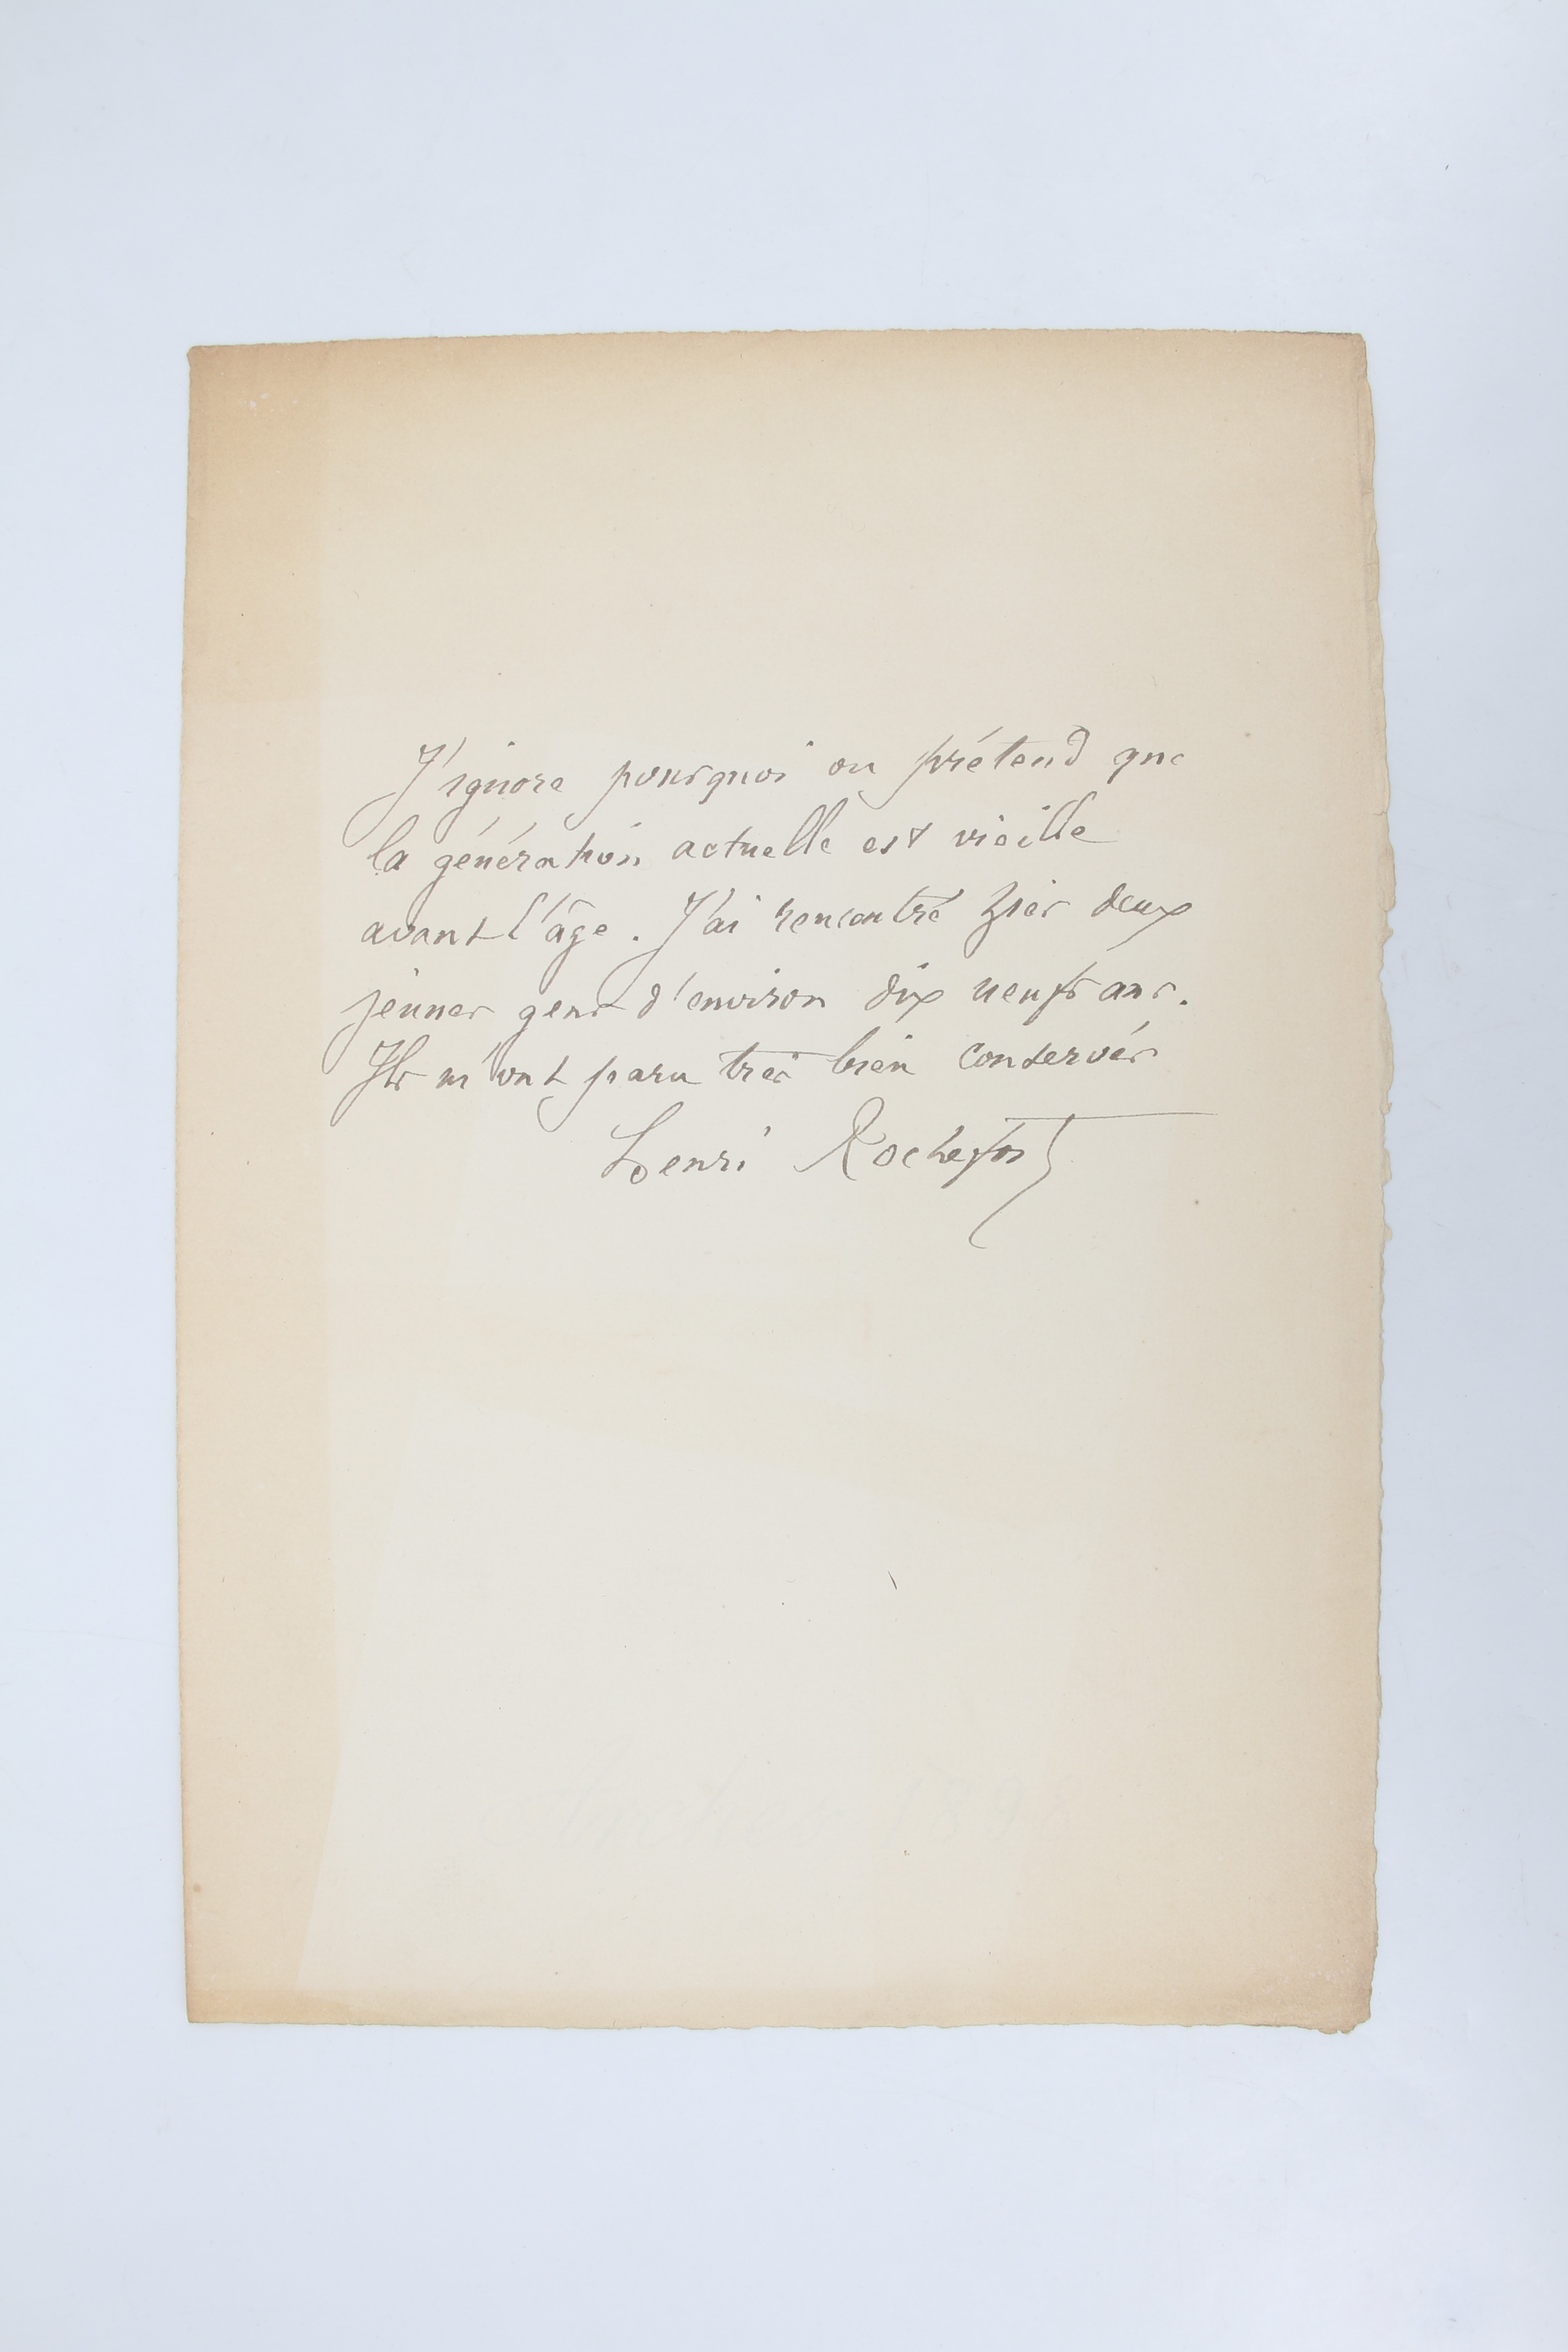 J'ignore pourquoi on prétend que
la génération actuelle est vieille
avant l'âge. J'ai rencontré hier deux
jeunes gens d'environ dix neuf ans.
Ils m'ont paru très bien conservés
Henri Rochefort